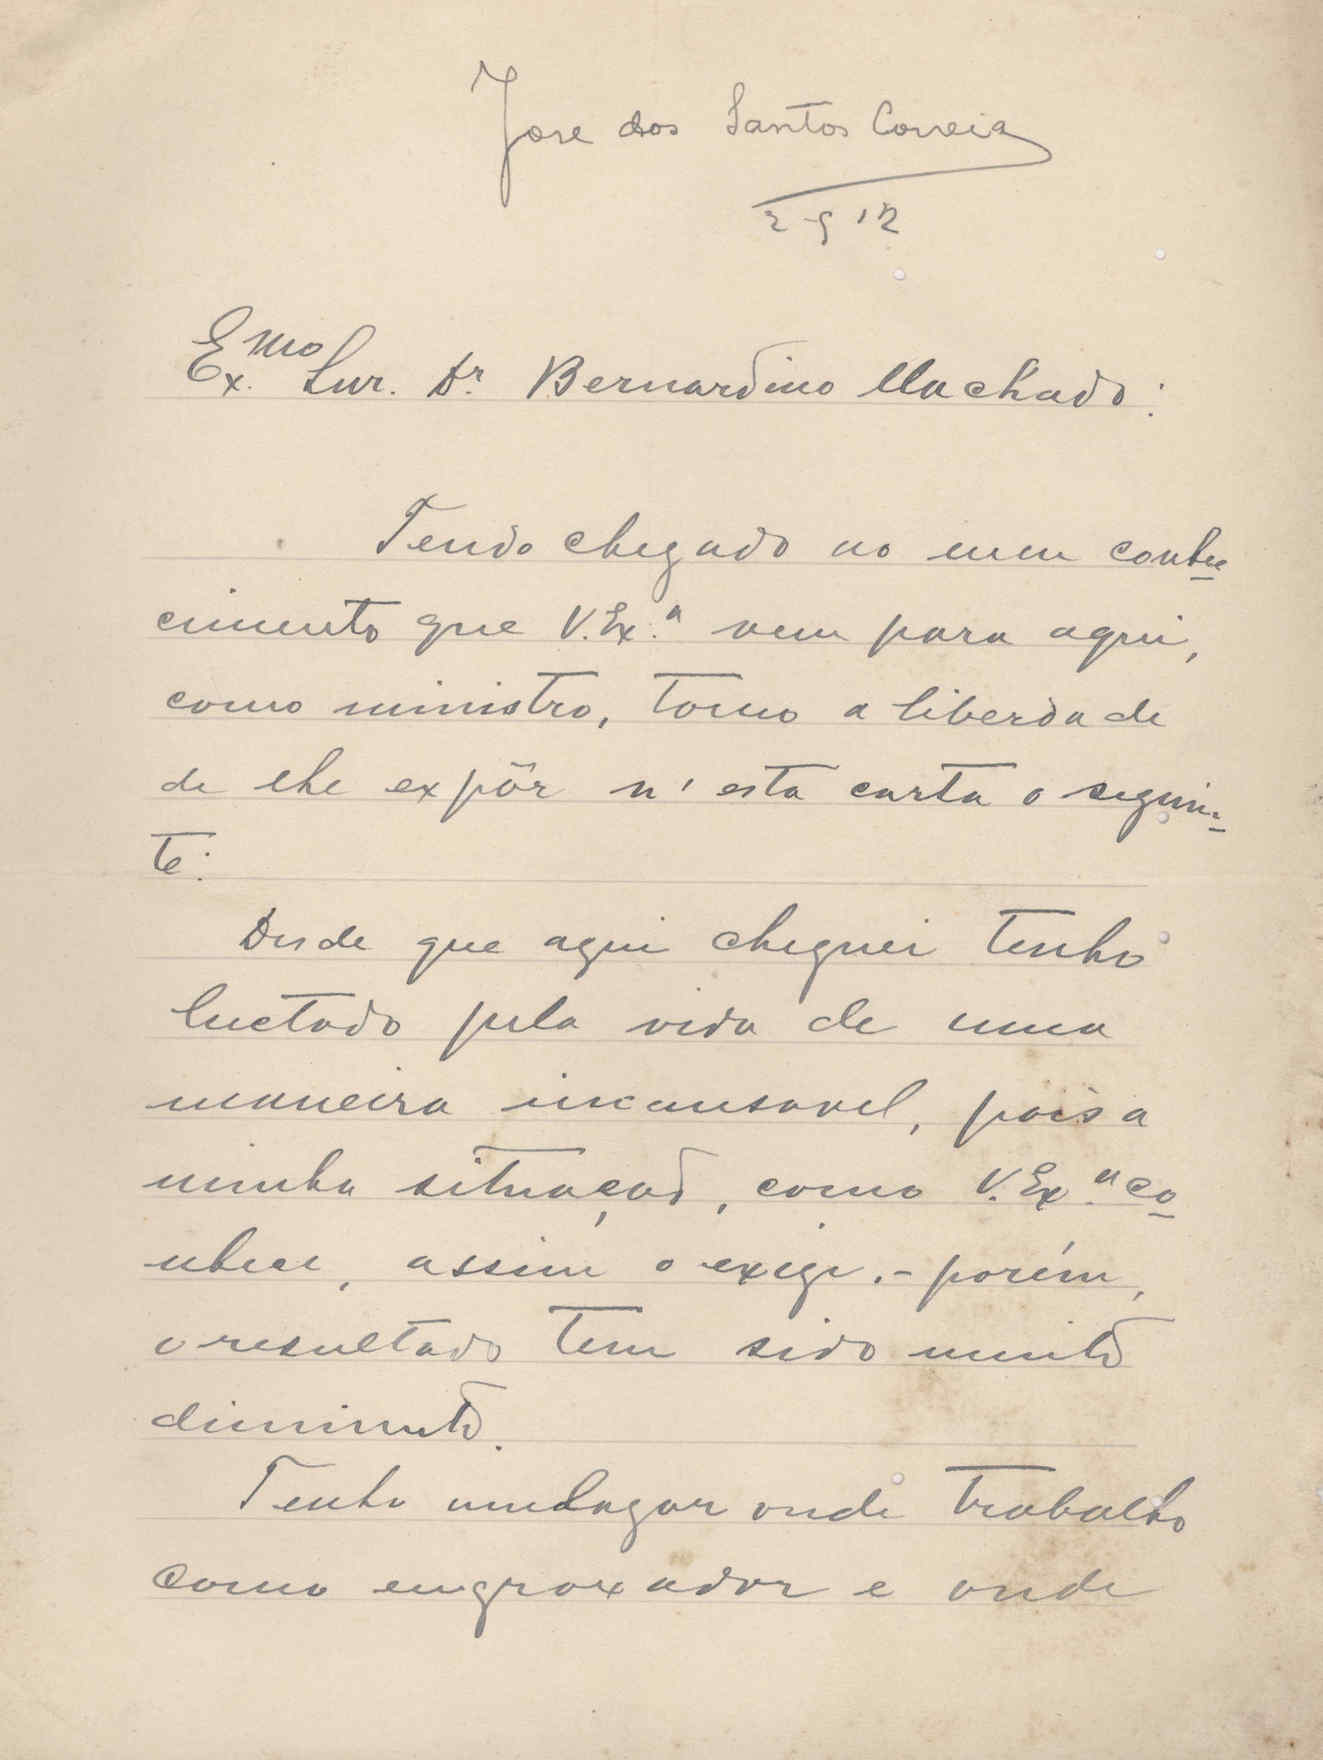 Jose dos Santos Correia
2-5 12
Ex.mo Snr. Dr. Bernardino Machado:
Tendo chegado ao meu conhe-
cimento que V. Ex.ª vem para aqui,
como ministro, tomo a liberdade
de lhe expôr n'esta carta o seguin-
te:
Desde que aqui cheguei tenho
luctado pela vida de uma
maneira incansavel, pois a
minha situação, como V. Ex.ª co-
nhece, assim o exige. - porém,
o resultado tem sido muito
diminuto.
Tenho um lugar onde trabalho
como engraxador e onde